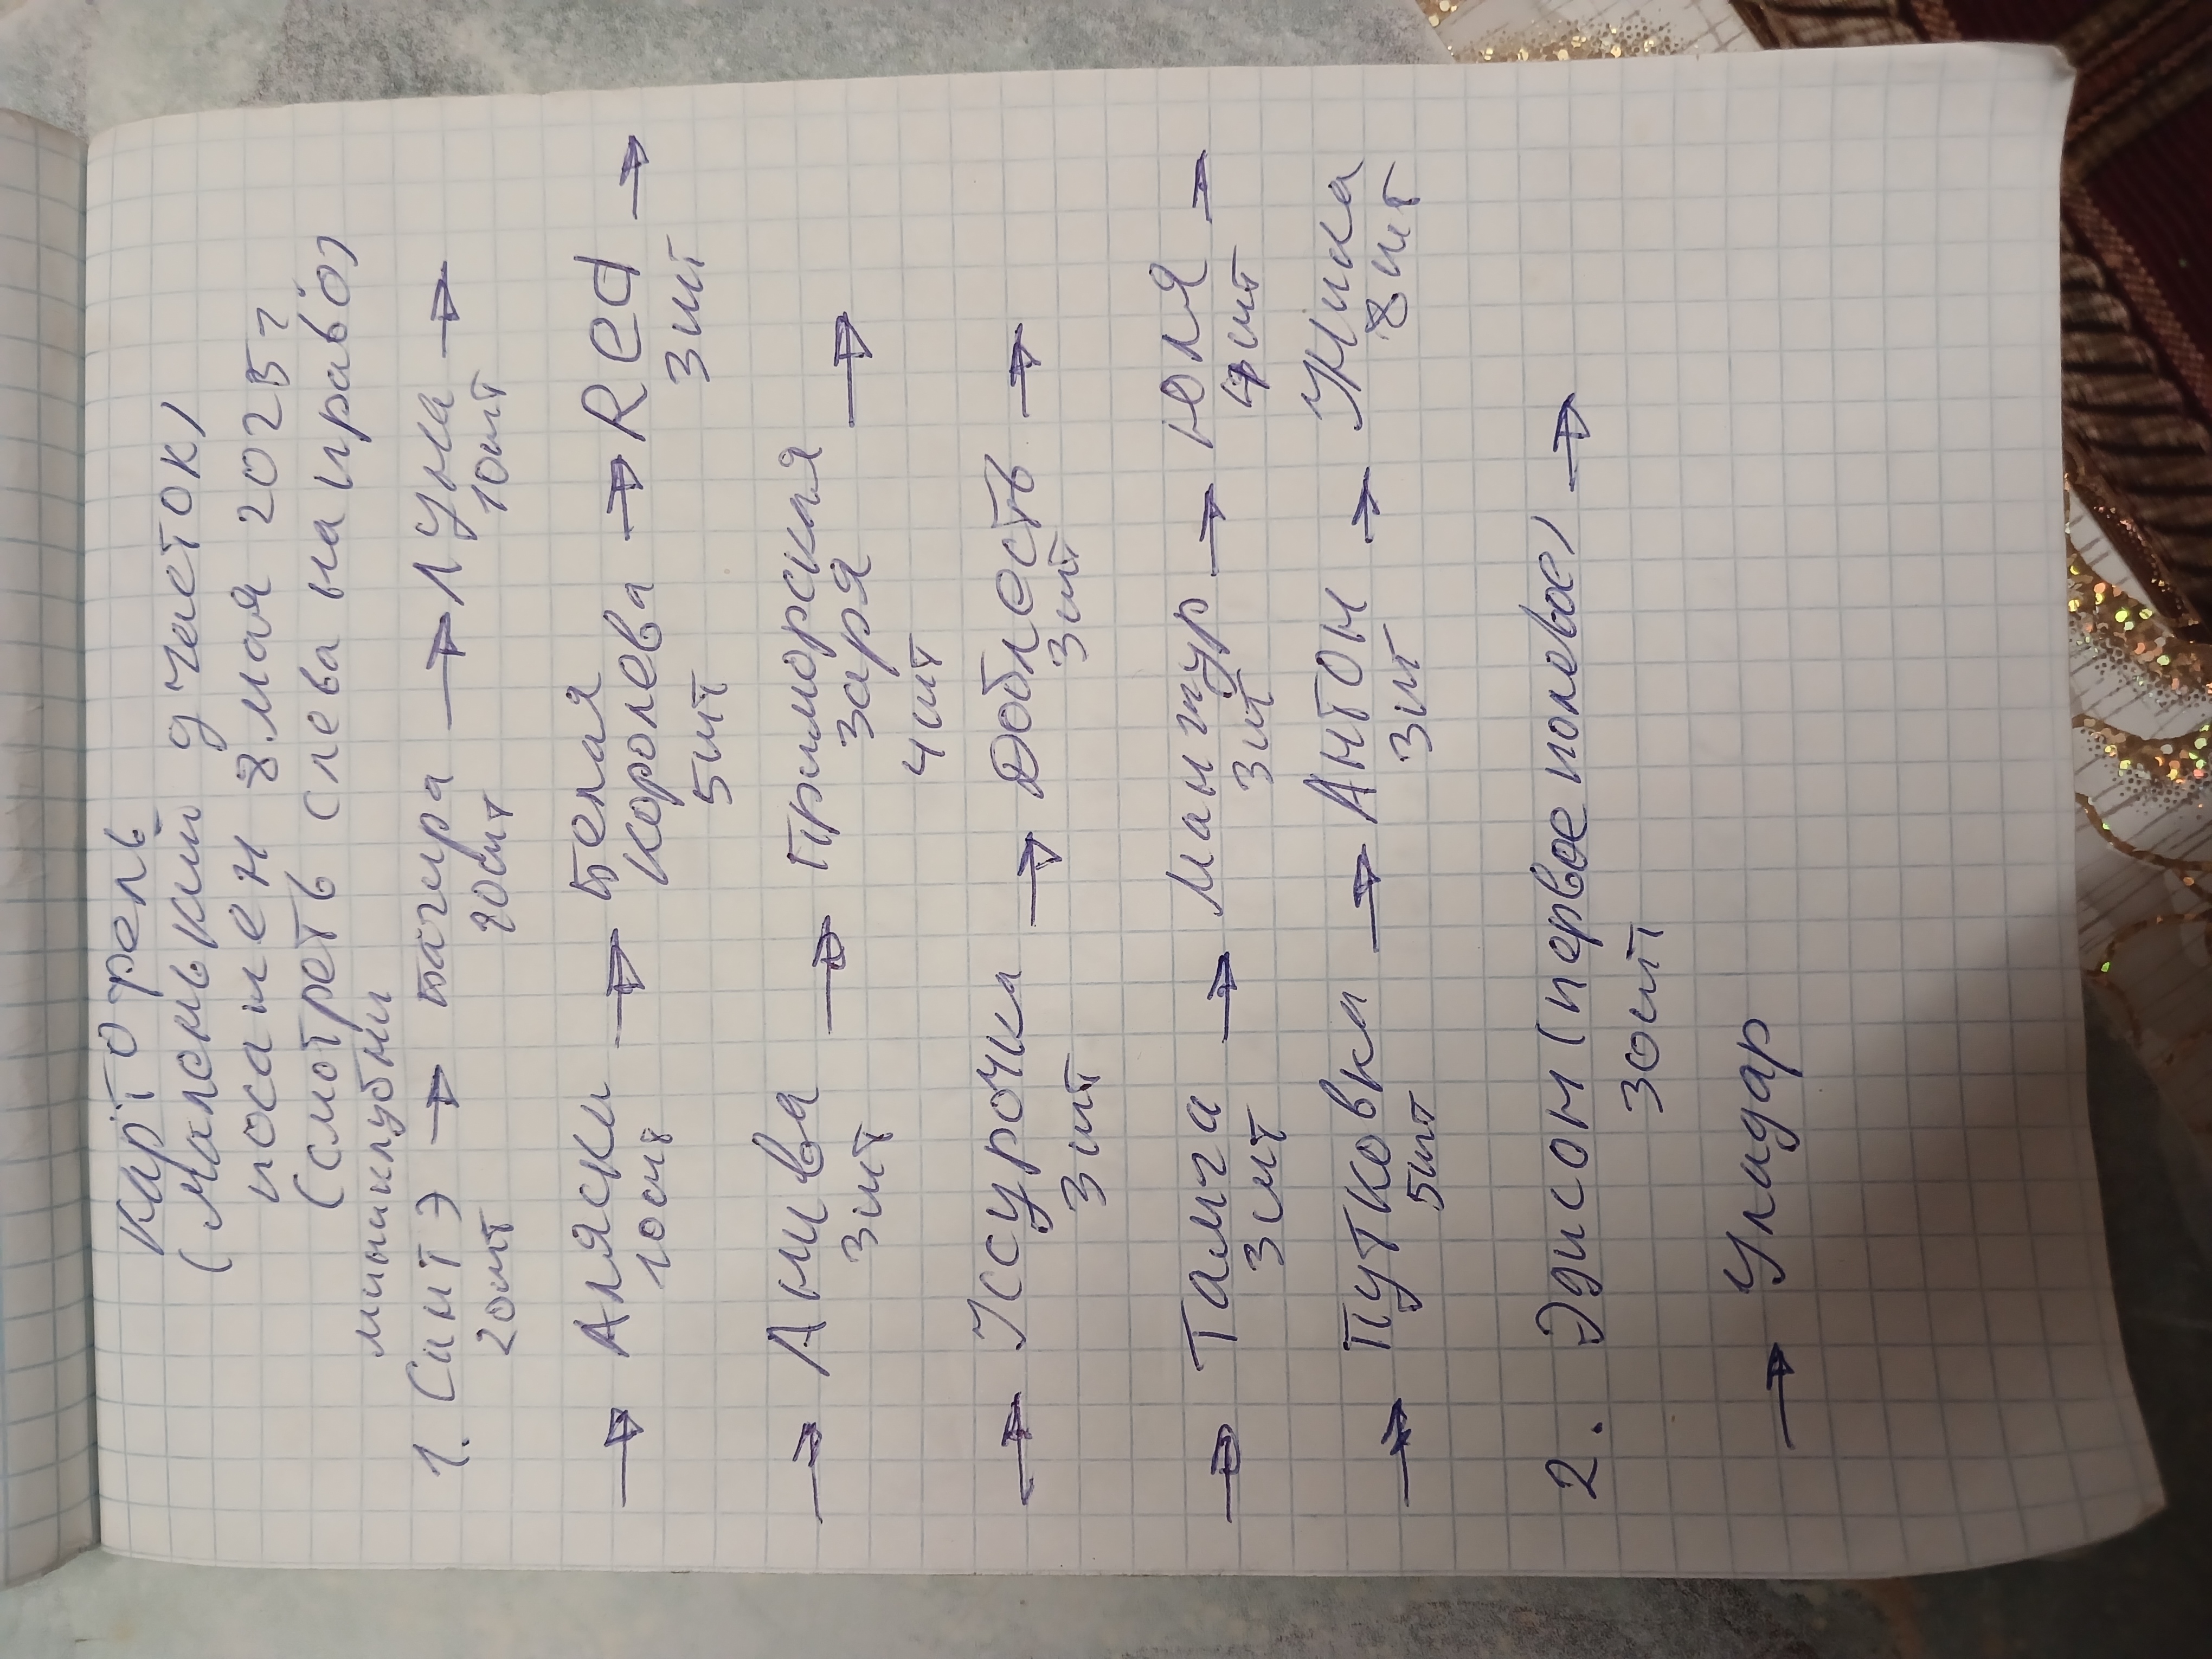 Картофель
(маленький участок)
посажен 8.мая 2025г
(смотреть слева на право)
миниклубни
1. Синтэ → Багира → Луна →
20шт 20шт 10шт
→ Аляски → Белая королева → Red →
10шт 5шт 3шт
→ Анива → Приморская заря →
3шт 4шт
→ Уссурочка → Доблесть →
3шт 3шт
→ Тамга → Манжур → Юля →
3шт 3шт 4шт
→ Путковка → Антон → Ника
5шт 3шт 8шт
2. Эдисон (первое полевое) →
30шт
→ Улидар